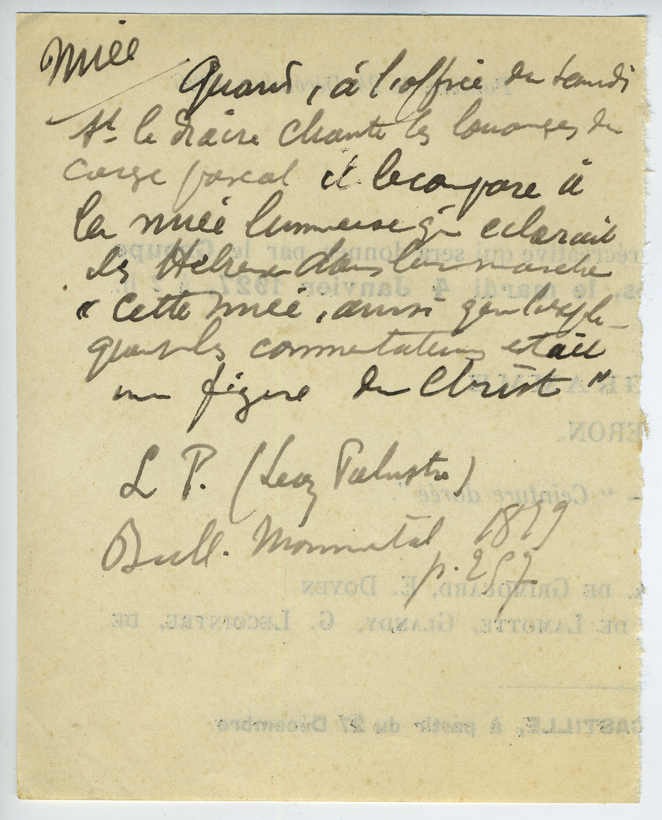 Nuée
Quand, à l'office du samedi
St le diacre chante les louanges du
cierge pascal il le compare à
la nuée lumineuse qui eclairait
les Hébreux dans leur marche
« cette nuée, ainsi que l'expli-
quent les commentateurs etait
une figure du Christ "
L P. (Leon Palustre)
Bull. Monumental 1879
p. 257
récréative qui sera donnée par le Groupe
le mardi 4 Janvier 1927, à
ERON
" Ceinture dorée
DE GRIMOUARD, E. DOYEN
DE LAMOTTE, GLANDY, G. LECOINTRE, DE
CASTILLE, à partir du 27 Décembre